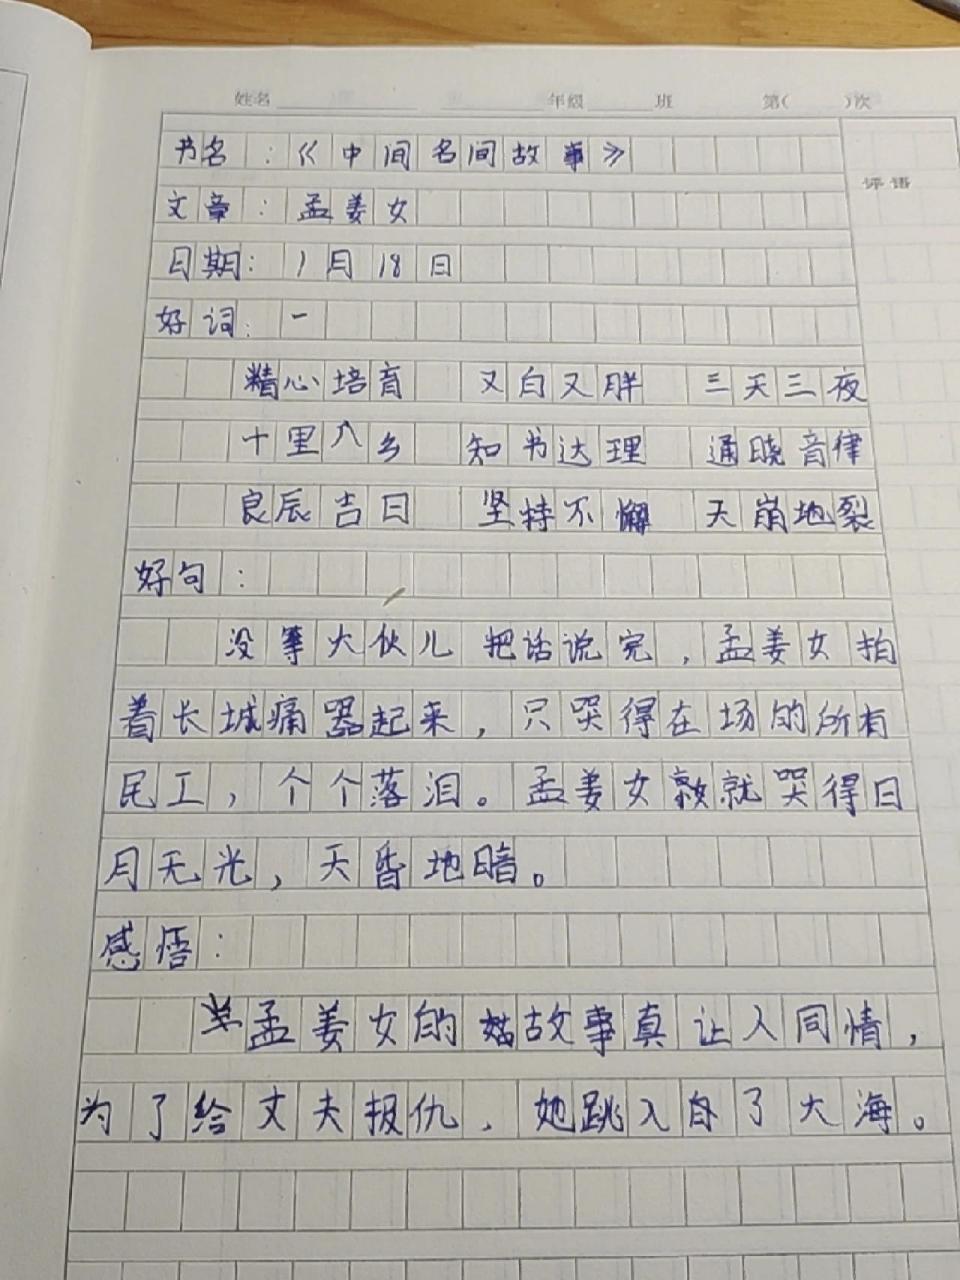 姓名 年级 班 第( )次
评语
书名：《中间名间故事》
文章：孟姜女
日期：1月18日
好词：一
精心培育 又白又胖 三天三夜
十里八乡 知书达理 通晓音律
良辰吉日 坚持不懈 天崩地裂
好句：
没等大伙儿把话说完，孟姜女拍
着长城痛嚣起来，只哭得在场的所有
民工，个个落泪。孟姜女就哭得日
月无光，天昏地暗。
感悟：
孟姜女的故事真让人同情，
为了给丈夫报仇，她跳入自了大海。